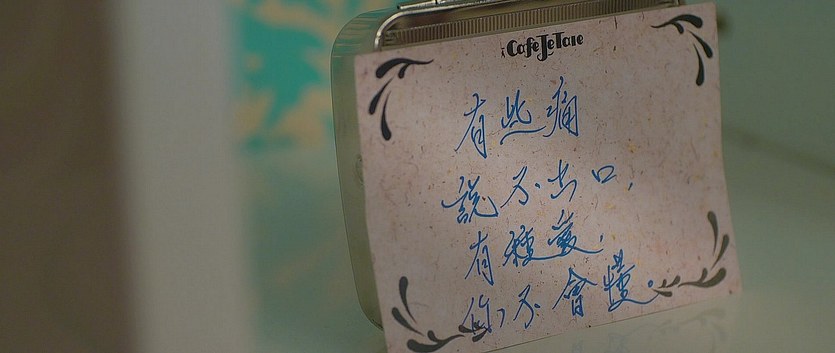 Café Je T'aie
有些痛
說不出口,
有種愛,
你不會懂。